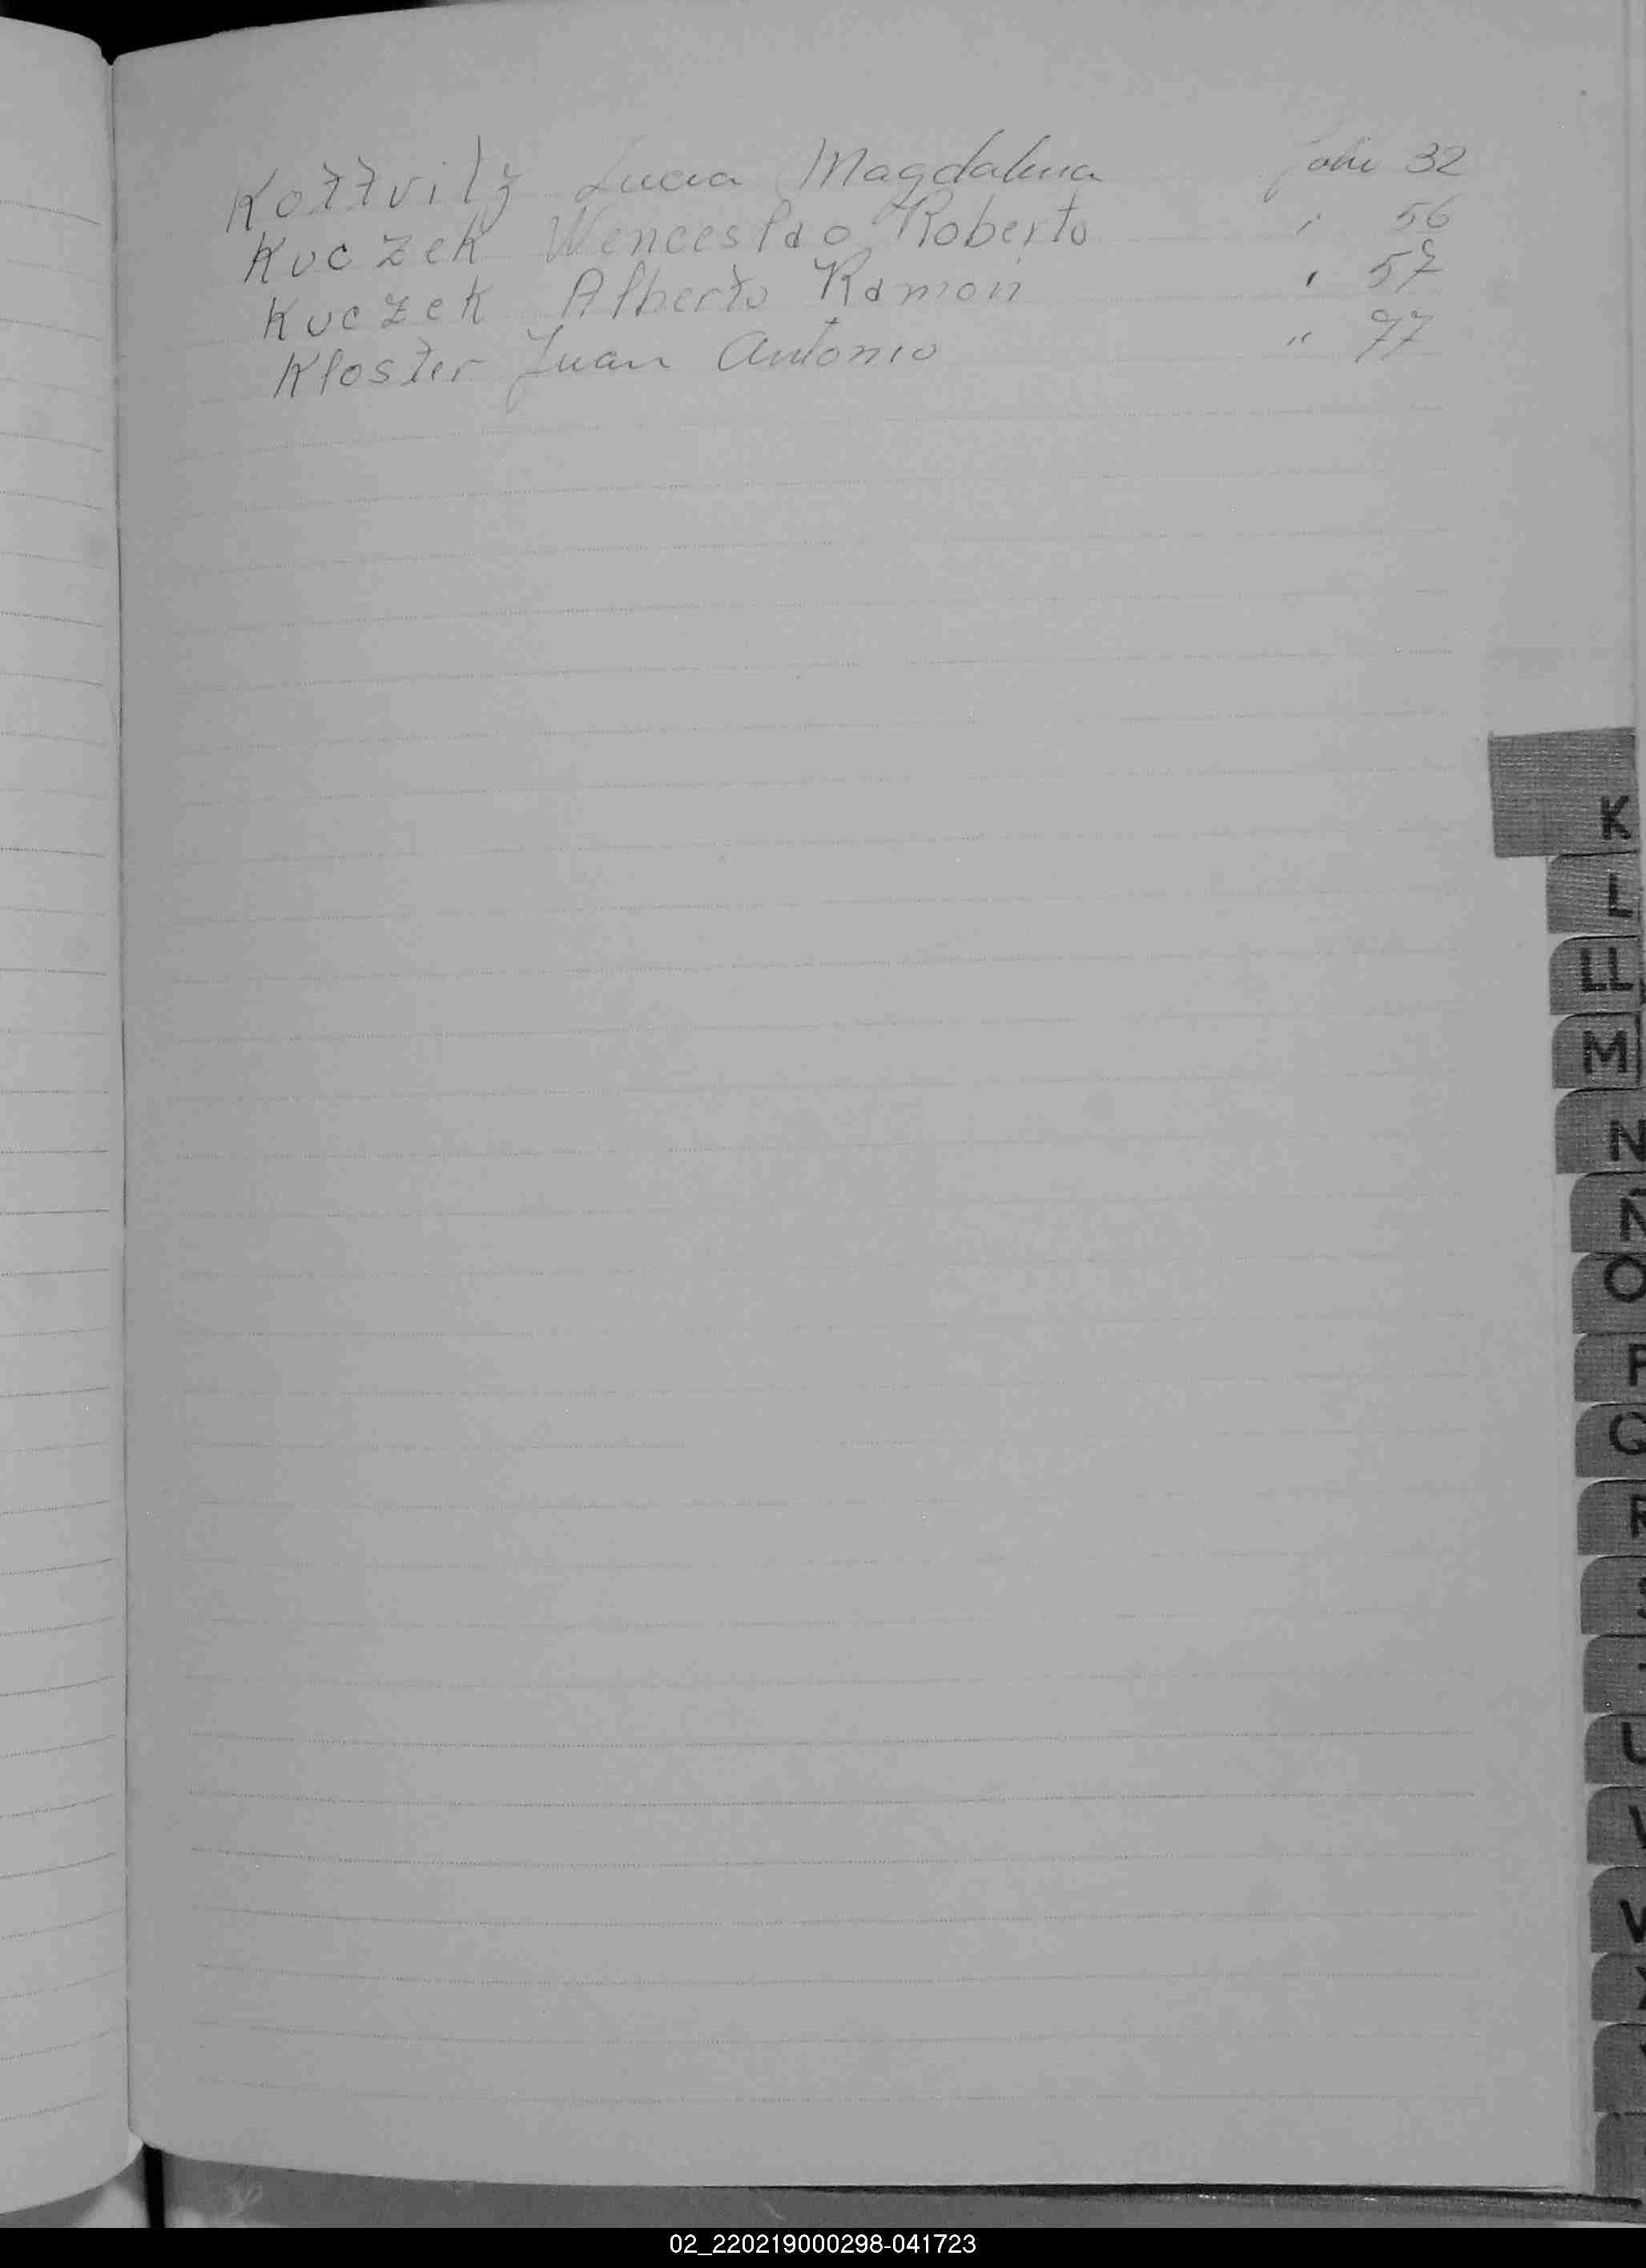 Kottvitz Lucia Magdalena folio 32
Kuczek Wenceslao Roberto " 56
Kuczek Alberto Ramon " 57
Kloster Juan Antonio " 77
K
L
LL
M
N
Ñ
O
P
Q
R
U
V
02_220219000298-041723